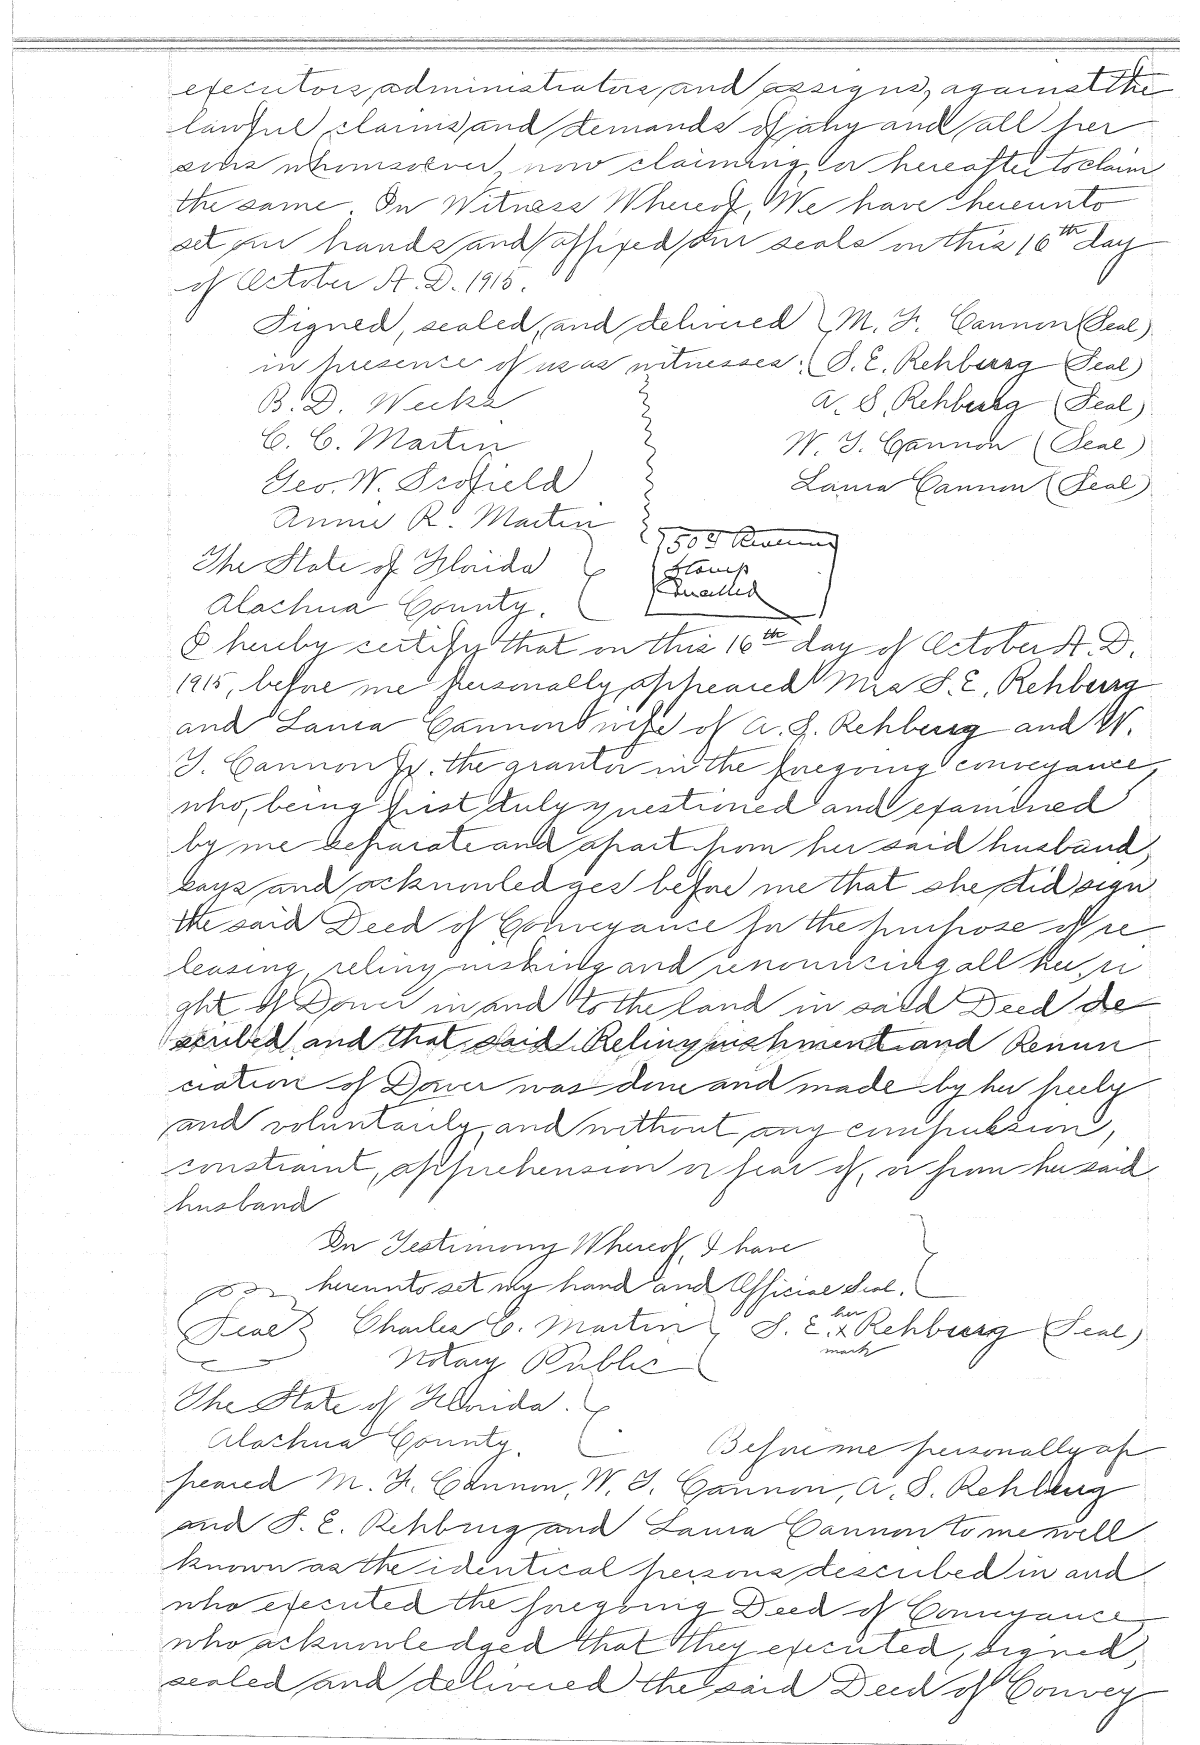 executors, administrators, and assigns, against the
lawful claims and demands of any and all per
sons whomsoever, now claiming, or hereafter to claim
the same. In Witness Whereof, We have hereunto
set our hands and affixed our seals on this 16th day
of October A. D. 1915.
Signed, sealed, and delivered M. F. Cannon (Seal)
in presence of us as witnesses: S. E. Rehberg (Seal)
B. D. Weeks A. S. Rehberg (Seal)
C. C. Martin W. J. Cannon (Seal)
Geo. W. Scofield Laura Cannon (Seal)
Annie R. Martin
50¢ Revenue
The State of Florida Stamp
Alachua County. Cancelled
I hereby certify that on this 16th day of October A. D.
1915, before me personally appeared Mrs S. E. Rehberg
and Laura Cannon wife of A. S. Rehberg and W.
J. Cannon Jr. the grantor in the foregoing conveyance,
who, being first duly questioned and examined
by me separate and apart from her said husband,
says and acknowledges before me that she did sign
the said Deed of Conveyance for the purpose of re
leasing, relinquishing and renouncing all her ri
ght of Dower in and to the land in said Deed de
scribed, and that said Relinquishment and Renun
ciation of Dower was done and made by her freely
and voluntarily, and without any compulsion,
constraint, apprehension or fear of, or from her said
husband
In Testimony Whereof, I have
hereunto set my hand and Official Seal.
Seal Charles C. Martin S. E. her x mark Rehberg (Seal)
Notary Public
The State of Florida.
Alachua County. Before me personally ap
peared M. F. Cannon, W. J. Cannon, A. S. Rehberg
and S. E. Rehberg and Laura Cannon to me well
known as the identical persons described in and
who executed the foregoing Deed of Conveyance
who acknowledged that they executed, signed,
sealed and delivered the said Deed of Convey